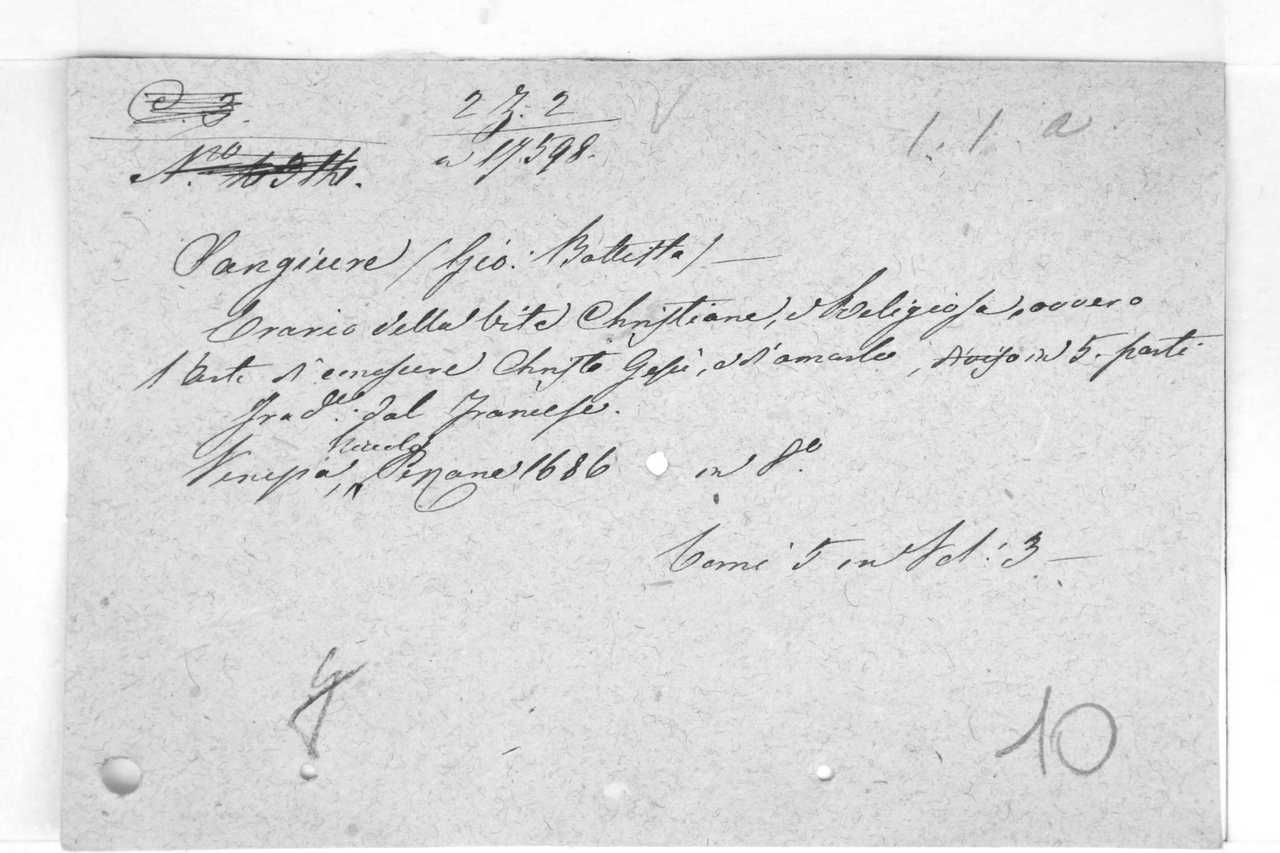 C. 3. 2 Z. 2 1. 1. a
N.ro a 17.598.
Sangiure (Gio: Battista) —
Erario della Vita Christiana, e Religiosa, ovvero
l'Arte di conoscere Christo Gesù, e d'amarlo, diviso in 5. parti
Trad.e dal Francese.
Niccolo
Venezia, Pezzana 1686 in 8.o
Tomi 5 in Vol: 3 —
10